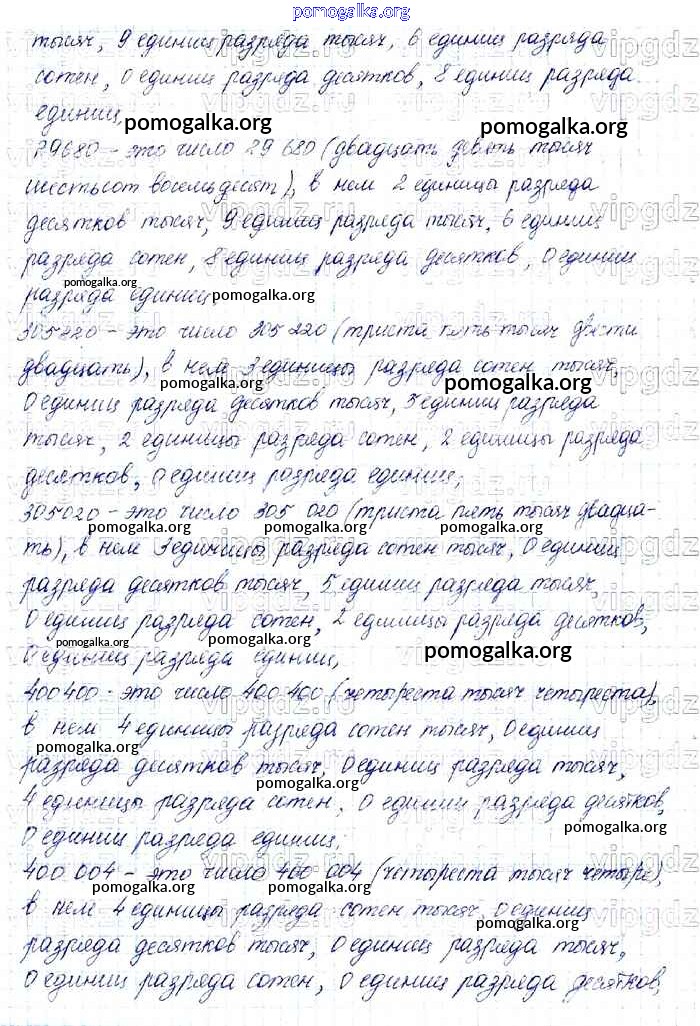 pomogalka.org
тысяч, 9 единиц разряда тысяч, 6 единиц разряда
сотен, 0 единиц разряда десятков, 8 единиц разряда
единиц,
pomogalka.org pomogalka.org
29680 - это число 29 680 (двадцать девять тысяч
шестьсот восемьдесят), в нем 2 единицы разряда
десятков тысяч, 9 единиц разряда тысяч, 6 единиц
разряда сотен, 8 единиц разряда десятков, 0 единиц
pomogalka.org
разряда единиц, pomogalka.org
305220 - это число 305 220 (триста пять тысяч двести
двадцать), в нем 3 единицы разряда сотен тысяч,
pomogalka.org pomogalka.org
0 единиц разряда десятков тысяч, 5 единиц разряда
тысяч, 2 единицы разряда сотен, 2 единицы разряда
десятков, 0 единиц разряда единиц,
305020 - это число 305 020 (триста пять тысяч двадца-
pomogalka.org pomogalka.org
ть), в нем 3 единицы разряда сотен тысяч, 0 единиц
разряда десятков тысяч, 5 единиц разряда тысяч,
0 единиц разряда сотен, 2 единицы разряда десятков,
pomogalka.org pomogalka.org
0 единиц разряда единиц, pomogalka.org
400400 - это число 400 400 (четыреста тысяч четыреста),
в нем 4 единицы разряда сотен тысяч, 0 единиц
pomogalka.org
разряда десятков тысяч, 0 единиц разряда тысяч,
pomogalka.org
4 единицы разряда сотен, 0 единиц разряда десятков,
pomogalka.org
0 единиц разряда единиц;
400 004 - это число 400 004 (четыреста тысяч четыре),
pomogalka.org pomogalka.org
в нем 4 единицы разряда сотен тысяч, 0 единиц
разряда десятков тысяч, 0 единиц разряда тысяч,
0 единиц разряда сотен, 0 единиц разряда десятков,